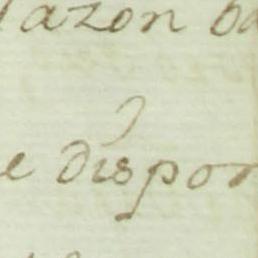 razon ba
e dispon